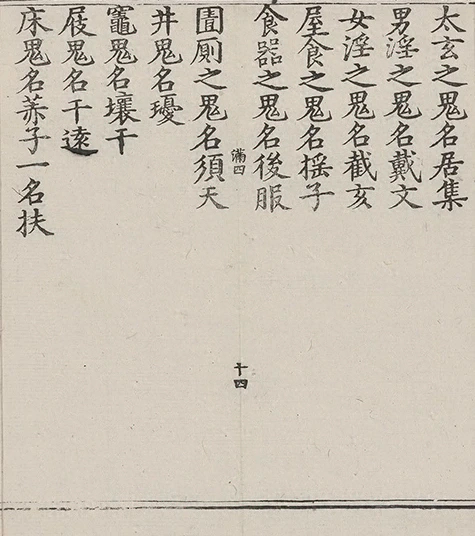 太玄之鬼名居集
男淫之鬼名戴文
女淫之鬼名截亥
屋食之鬼名摇子
食器之鬼名後服
滿四
十四
圊厠之鬼名須天
井鬼名瓊
竈鬼名壤干
屐鬼名千逺
床鬼名荞子一名扶